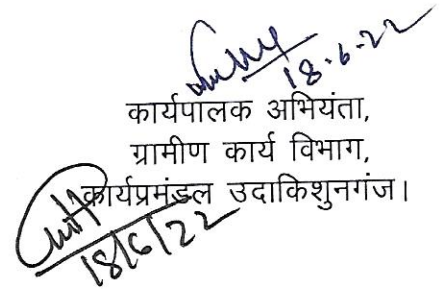 18.6.22
कार्यपालक अभियंता,
ग्रामीण कार्य विभाग,
कार्यप्रमंडल उदाकिशुनगंज।
18/6/22